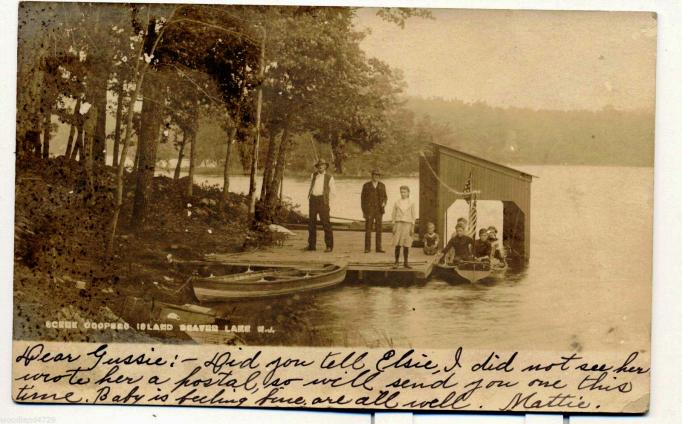 SCENE COOPERS ISLAND BEAVER LAKE N.J.
Dear Gussie:- Did you tell Elsie, I did not see her
wrote her a postal, so will send you one this
time. Baby is feeling fine, are all well. Mattie.
woodland4729